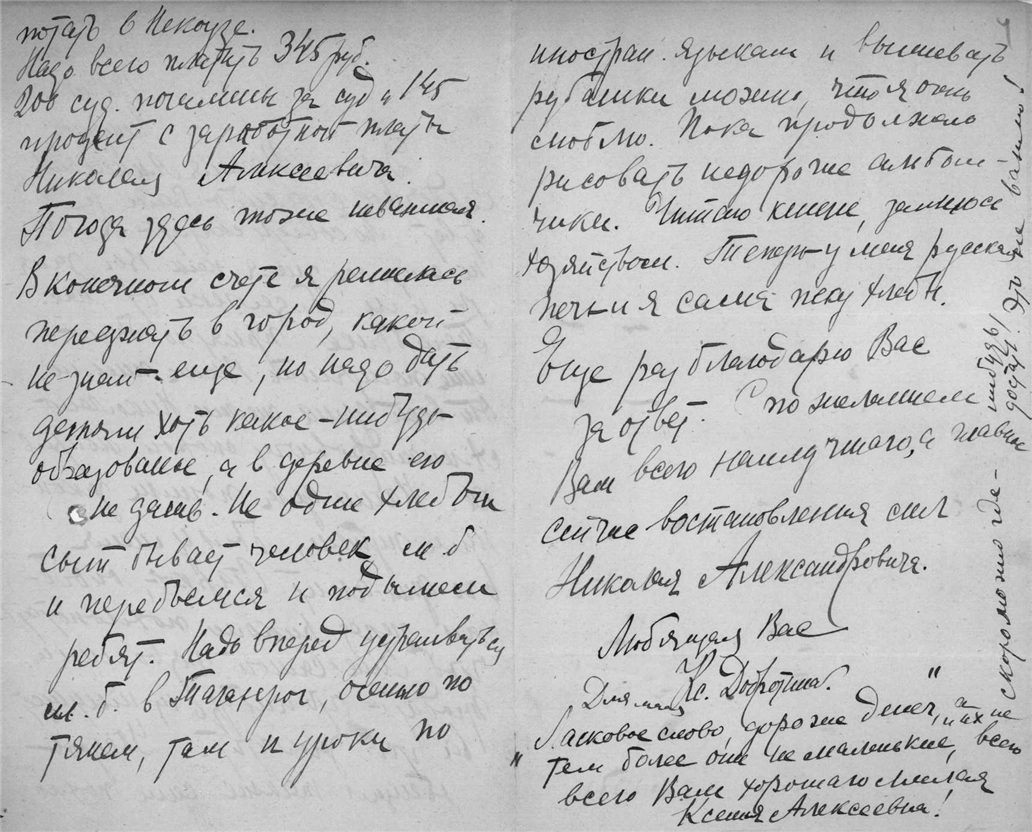 потать в Некоузе.
Надо всего платить 345 руб.
200 суд. пошлины за суд и 145
процент с заработной платы
Николая Алексеевича.
Погода здесь тоже неважная.
В конечном счете я решилась
переезжать в город, какой
не знаю еще, но надо дать
детям хоть какое-нибудь
образованье, а в деревне его
не дашь. Не одним хлебом
сыт бывает человек м. б.
и перебьемся и подымем
ребят. Надо вперед устраиваться
м. б. в Таганрог, осенью по
тянем, там и уроки по
иностран. языкам и вышивать
рубашки можно, что я очень
люблю. Пока продолжаю
рисовать недорогие альбом-
чики. Читаю книги, занимаюсь
хозяйством. Теперь у меня русская
печь и я сама пеку хлебы.
Еще раз благодарю Вас
за ответ. С пожеланием
Вам всего наилучшего, а главное
сейчас востановления сил
Николая Александровича.
Любящая Вас
Кс. Доброт
Для меня
"Ласковое слово, дороже денег", а
тем более они не маленькие, и их не
всего Вам хорошаго милая
Ксения Алексеевна!
скоро можно где-нибудь
достать! Это не важно!